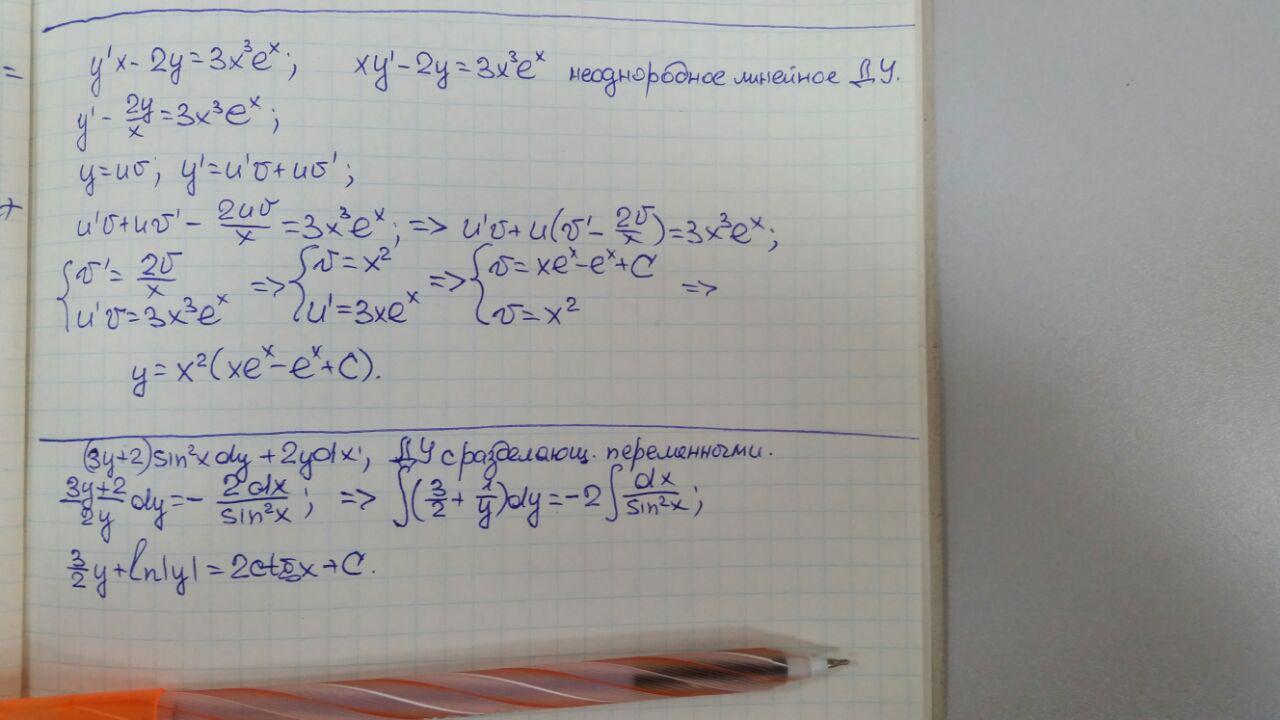 y'x - 2y = 3x³eˣ; xy' - 2y = 3x³eˣ неоднородное линейное ДУ.
y' - 2y/x = 3x³eˣ;
y = uv; y' = u'v + uv';
u'v + uv' - 2uv/x = 3x³eˣ; => u'v + u(v' - 2v/x) = 3x³eˣ;
{ v' = 2v/x => { v = x² => { v = xeˣ - eˣ + C =>
u'v = 3x³eˣ u' = 3xeˣ v = x²
y = x²(xeˣ - eˣ + C).
(3y+2)sin²x dy + 2ydx; ДУ с разделяющ. переменными.
(3y+2)/2y dy = - 2dx/sin²x; => ∫(3/2 + 1/y)dy = -2∫dx/sin²x;
3/2 y + ln|y| = 2ctgx + C.